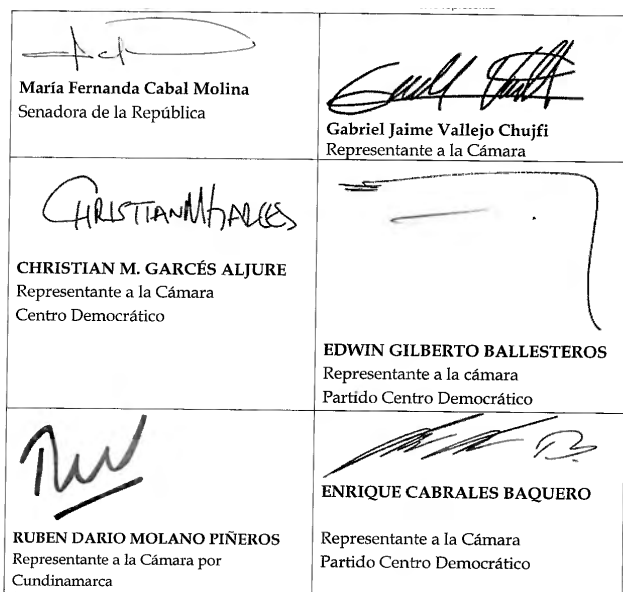 María Fernanda Cabal Molina
Senadora de la República
Gabriel Jaime Vallejo Chujfi
Representante a la Cámara
CHRISTIANMGARCES
CHRISTIAN M. GARCÉS ALJURE
Representante a la Cámara
Centro Democrático
EDWIN GILBERTO BALLESTEROS
Representante a la cámara
Partido Centro Democrático
RUBEN DARIO MOLANO PIÑEROS
Representante a la Cámara por
Cundinamarca
ENRIQUE CABRALES BAQUERO
Representante a la Cámara
Partido Centro Democrático